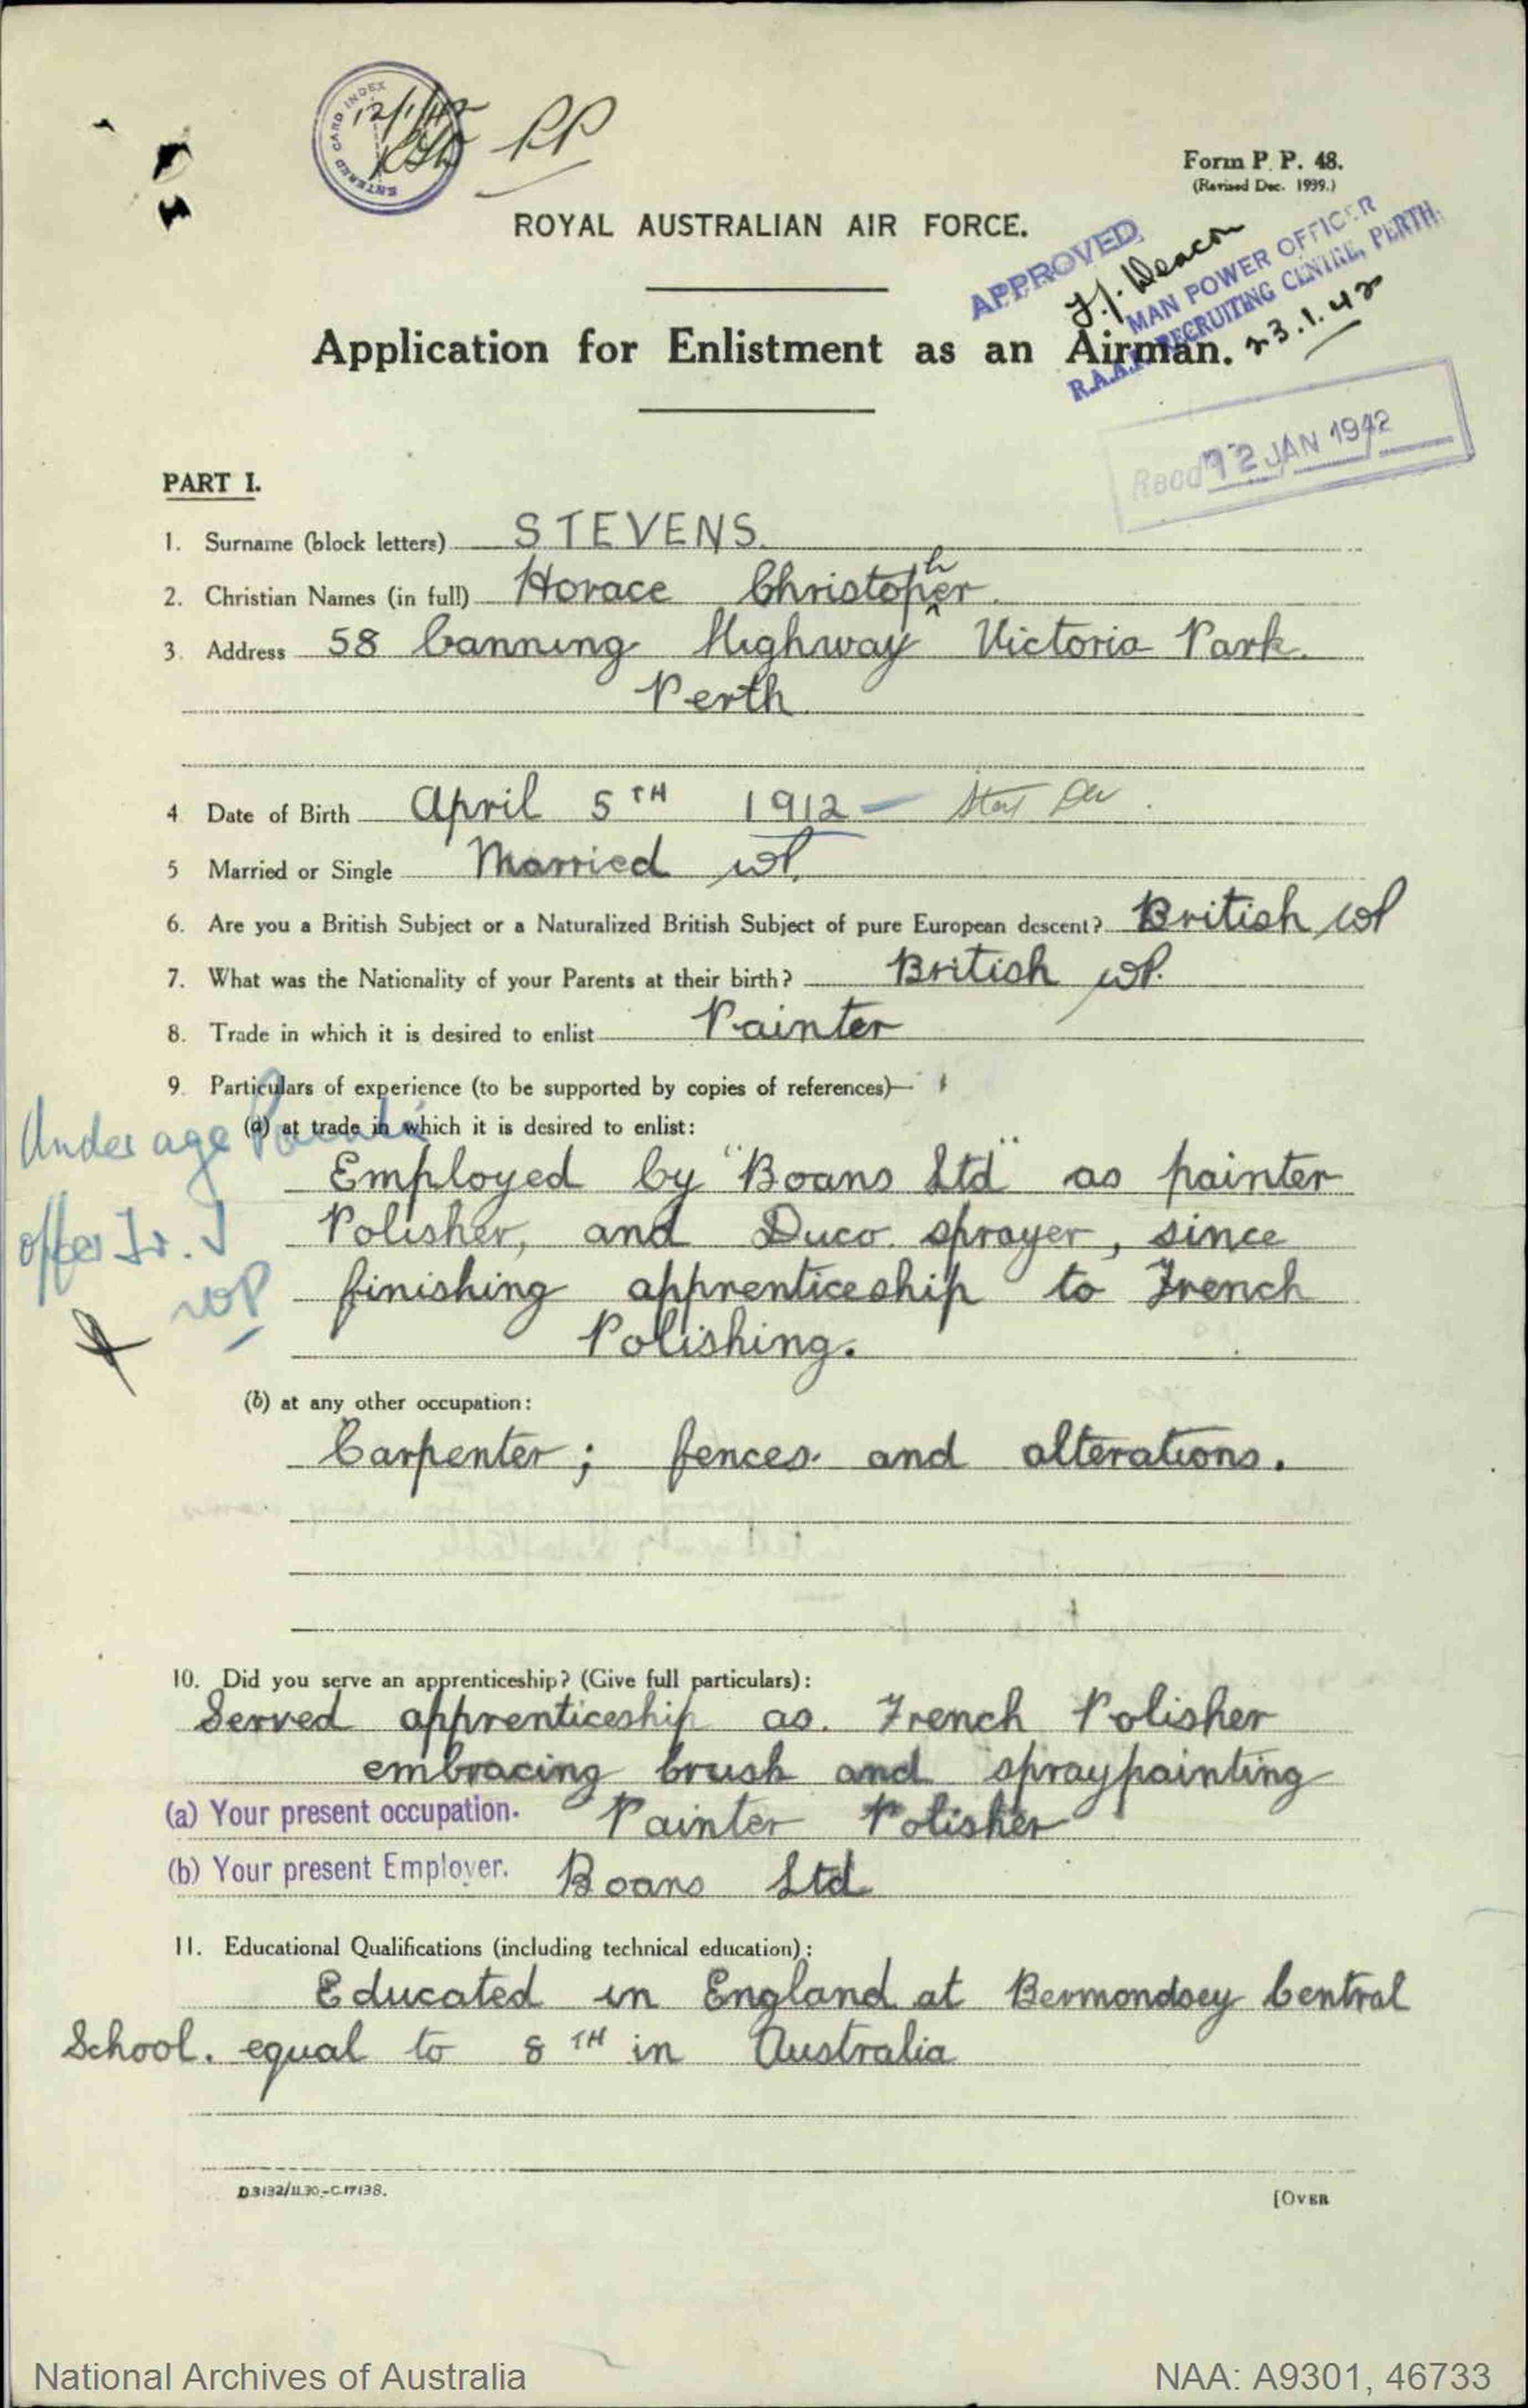 ENTERED CARD INDEX
12/1/42
PP
Form P. P. 48.
(Revised Dec. 1939.)
ROYAL AUSTRALIAN AIR FORCE.
APPROVED
MAN POWER OFFICER
R.A.A.F. RECRUITING CENTRE, PERTH.
23.1.42
Application for Enlistment as an Airman.
Recd 12 JAN 1942
PART I.
1. Surname (block letters) STEVENS.
2. Christian Names (in full) Horace Christopher.
3. Address 58 Canning Highway Victoria Park.
Perth
4 Date of Birth April 5TH 1912
5 Married or Single Married WP.
6. Are you a British Subject or a Naturalized British Subject of pure European descent? British WP
7. What was the Nationality of your Parents at their birth? British WP.
8. Trade in which it is desired to enlist Painter
9. Particulars of experience (to be supported by copies of references)—
(a) at trade in which it is desired to enlist:
Under age Painter
offer Tr. J
WP
Employed by "Boans Ltd" as painter
Polisher, and Duco. sprayer, since
finishing apprenticeship to French
Polishing.
(b) at any other occupation:
Carpenter; fences. and alterations.
10. Did you serve an apprenticeship? (Give full particulars):
Served apprenticeship as. French Polisher
embracing brush and spraypainting
(a) Your present occupation. Painter Polisher
(b) Your present Employer. Boans Ltd
11. Educational Qualifications (including technical education):
Educated in England at Bermondsey Central
School. equal to 8TH in Australia
D.3132/11.39.-C.17138.
[OVER
National Archives of Australia
NAA: A9301, 46733